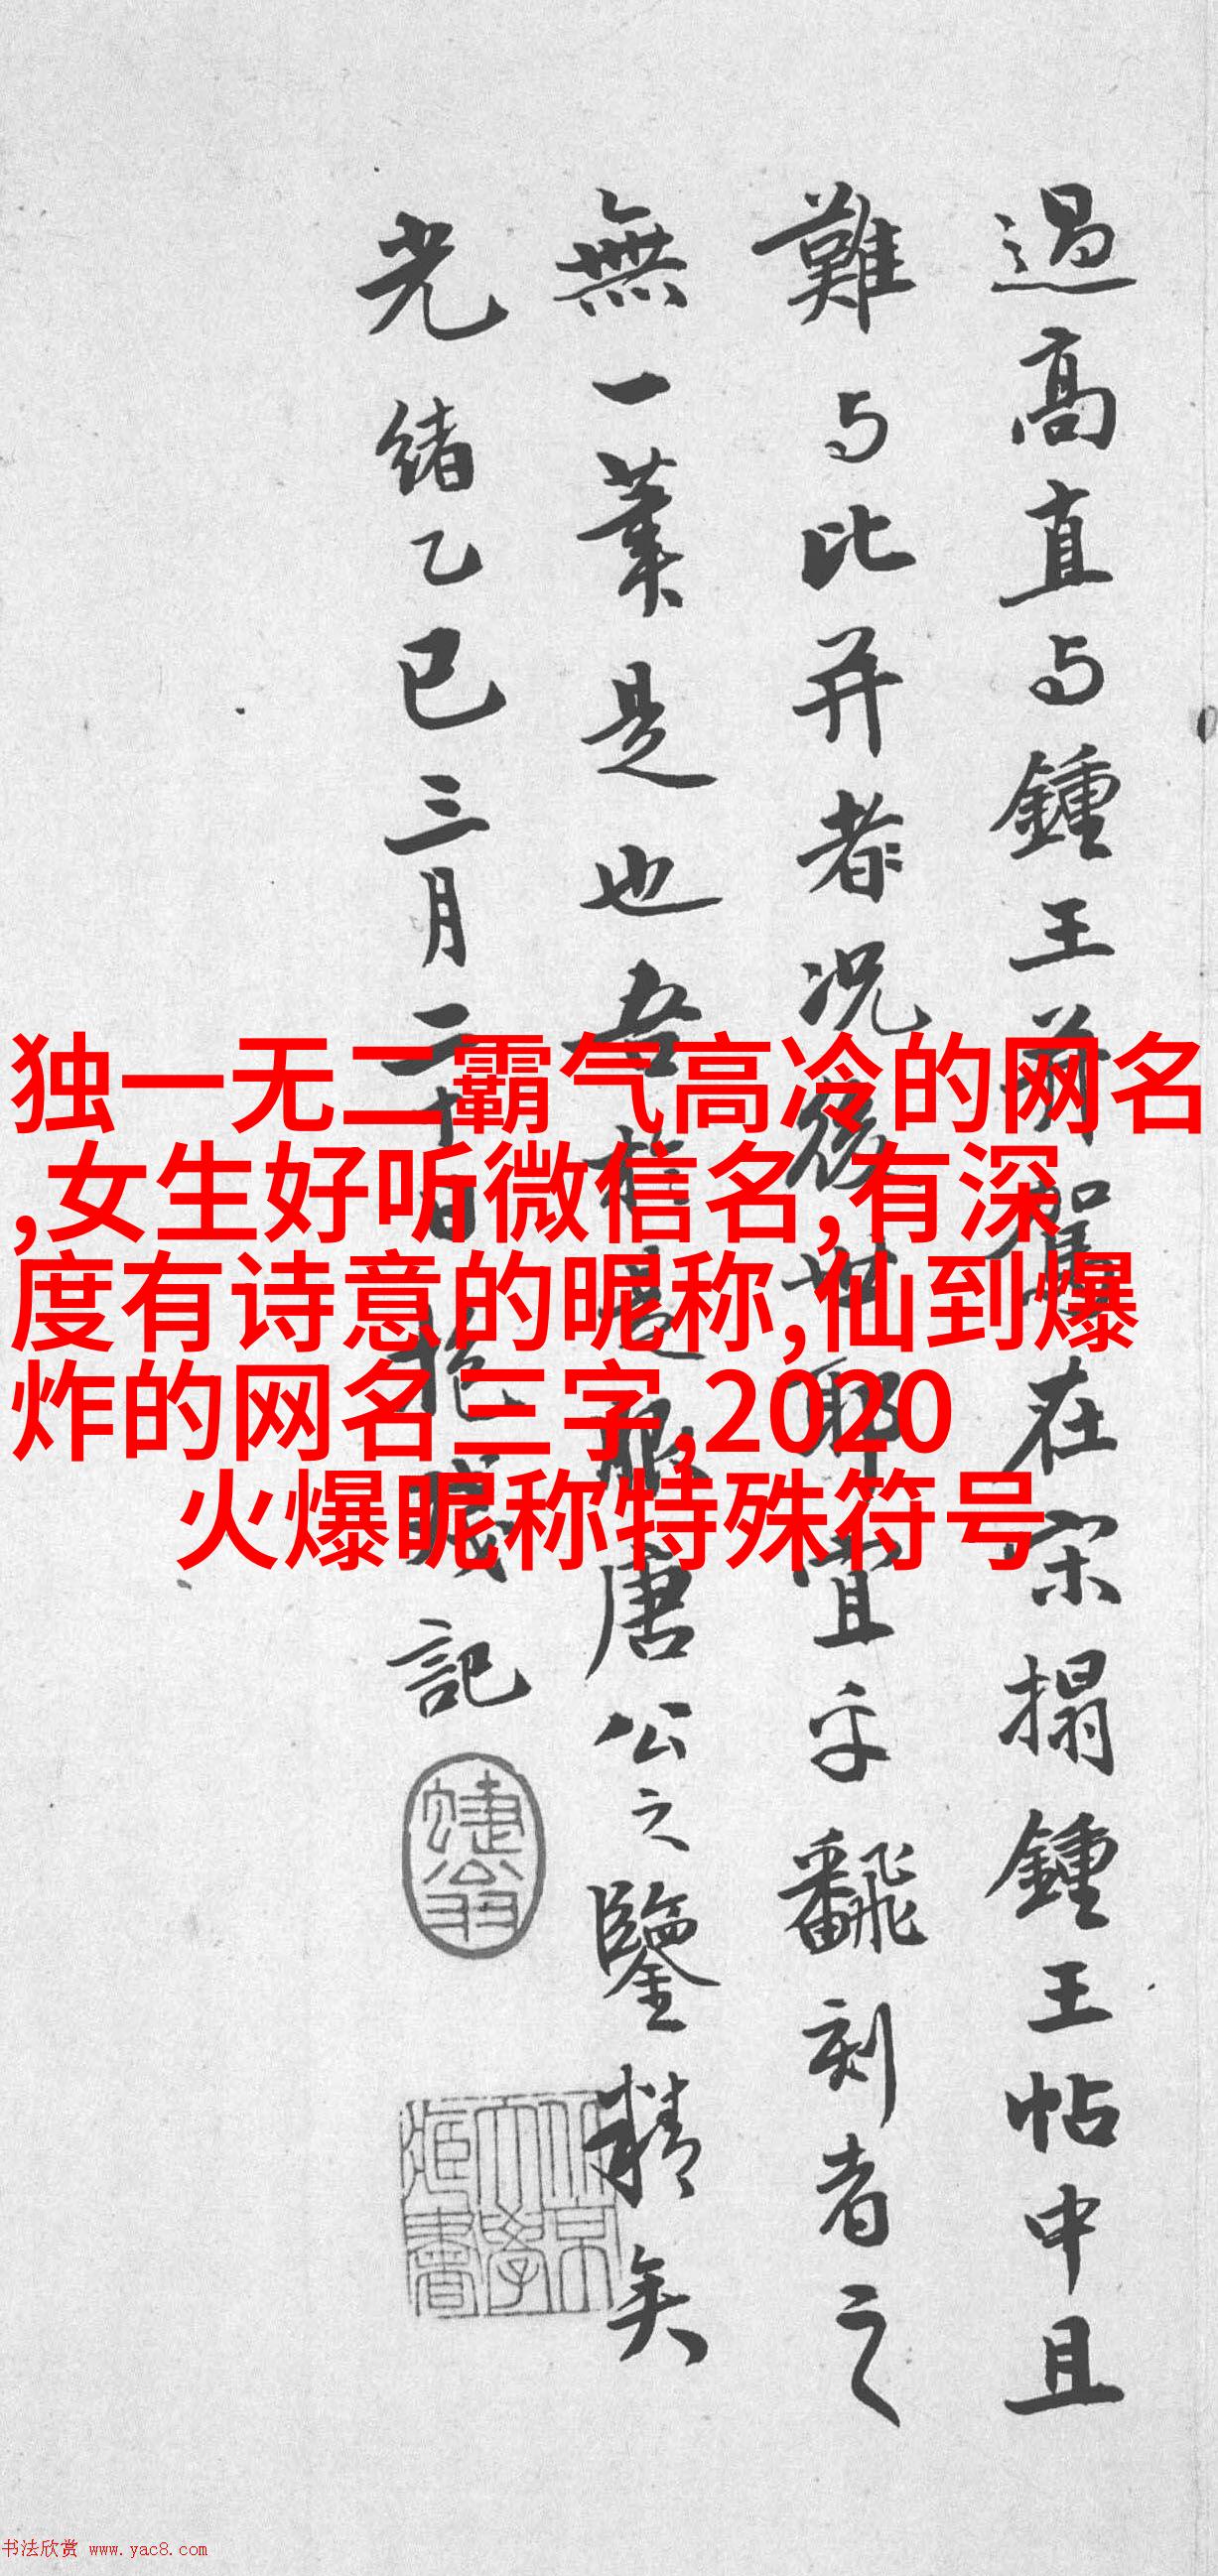 過高直与鍾王並駕在宋搨鍾王帖中且
難与比并者况後世耶宜乎翻刻者之
無一筆是也吾於是服唐公之鑒精矣
光緒乙巳三月二十日抱残記
独一无二霸气高冷的网名
,女生好听微信名,有深
度有诗意的昵称,仙到爆
炸的网名三字,2020
火爆昵称特殊符号
书法欣赏 www.yac8.com